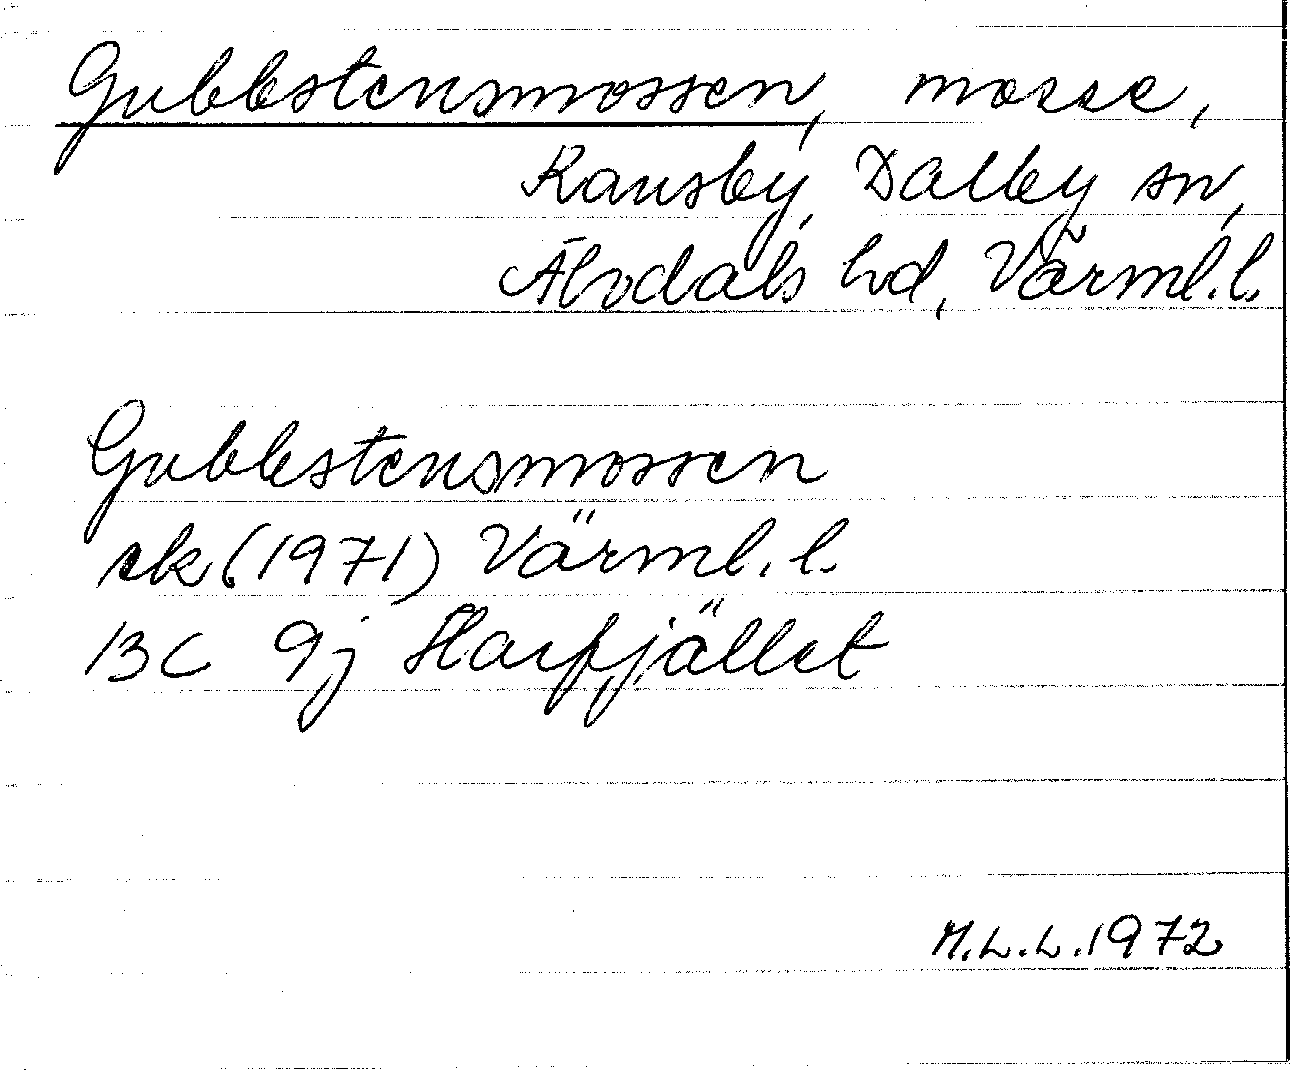 Gubbstensmossen, mosse,
Ransby, Dalby sn,
Älvdals hd, Värml.l.
Gubbstensmossen
ek (1971) Värml.l.
13C 9j Harfjället
M.L.L. 1972